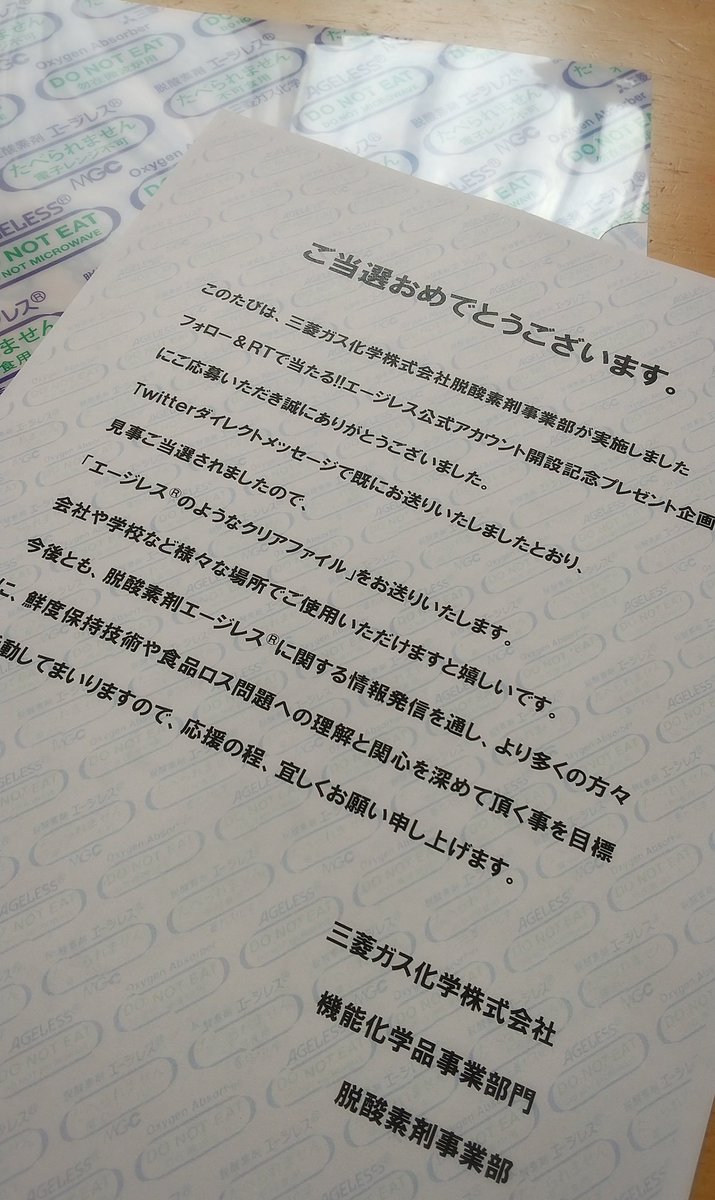 Oxygen Absorber
DO NOT EAT
たべられません
脱酸素剤 エージレス®
AGELESS®
DO NOT EAT
たべられません
電子レンジ不可
MGC
Oxygen Absorber
AGELESS®
NOT EAT
NOT MICROWAVE
ご当選おめでとうございます。
このたびは、三菱ガス化学株式会社脱酸素剤事業部が実施しました
フォロー＆RTで当たる!!エージレス公式アカウント開設記念プレゼント企画
にご応募いただき誠にありがとうございました。
Twitterダイレクトメッセージで既にお送りいたしましたとおり、
見事ご当選されましたので、
「エージレス®のようなクリアファイル」をお送りいたします。
会社や学校など様々な場所でご使用いただけますと嬉しいです。
今後とも、脱酸素剤エージレス®に関する情報発信を通し、より多くの方々
に、鮮度保持技術や食品ロス問題への理解と関心を深めて頂く事を目標
動してまいりますので、応援の程、宜しくお願い申し上げます。
三菱ガス化学株式会社
機能化学品事業部門
脱酸素剤事業部